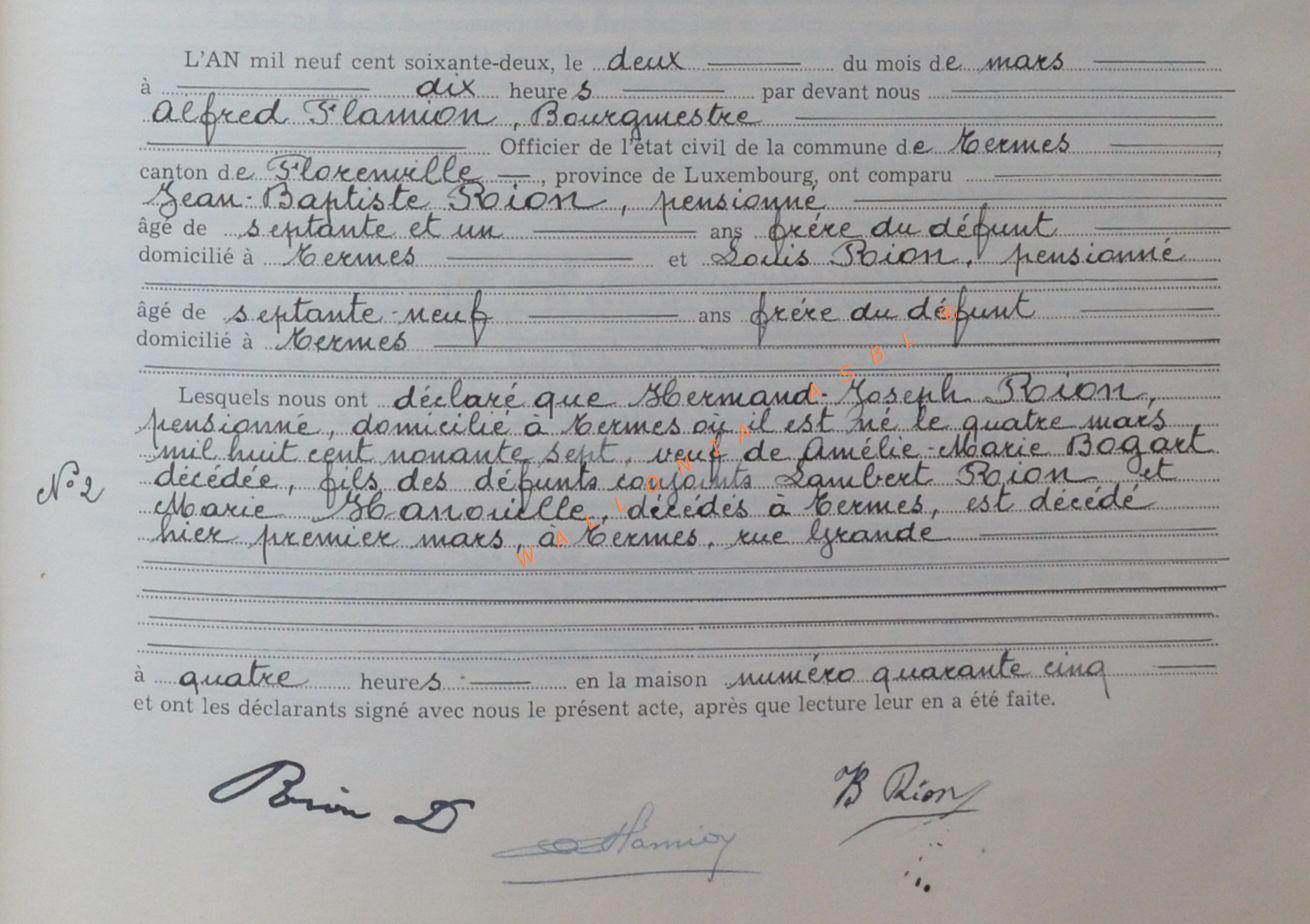 L'AN mil neuf cent soixante-deux, le deux du mois de mars
à dix heures par devant nous
Alfred Flamion, Bourgmestre
Officier de l'état civil de la commune de Termes
canton de Florenville, province de Luxembourg, ont comparu
Jean-Baptiste Rion, pensionné
âgé de septante et un ans frére du défunt
domicilié à Termes et Louis Rion, pensionné
âgé de septante-neuf ans frére du défunt
domicilié à Termes
Lesquels nous ont déclaré que Hermand-Joseph Rion,
pensionné, domicilié à Termes où il est né le quatre mars
mil huit cent nonante sept, veuf de Amélie-Marie Bogart
N°2 décédée, fils des défunts conjoints Lambert Rion et
Marie Hanouille, décédés à Termes, est décédé
hier premier mars, à Termes, rue Grande
à quatre heures en la maison numéro quarante cinq
et ont les déclarants signé avec nous le présent acte, après que lecture leur en a été faite.
Rion
Rion
WALLONIA ASBL ©